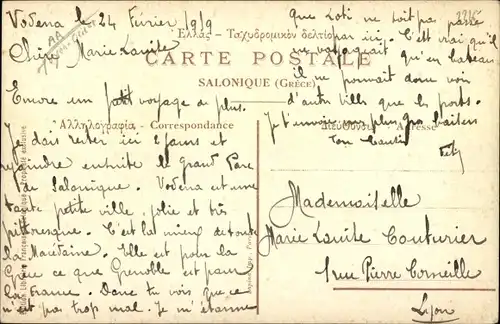 Vodena le 24 Février 1919
Chère Marie Louise
Encore un petit voyage de plus.
Je dois rester ici 2 jours et
rejoindre ensuite le grand Parc
de Salonique. Vodena est une
toute petite ville, jolie et très
pittoresque. C'est la mieux de toute
la Macédoine. Elle est pour la
Grèce ce que Grenoble est pour
la France. Donc tu vois que ce
n'est pas trop mal. Je m'étonne
que Loti ne soit pas passé
par ici. C'est vrai qu'il
ne voyageait qu'en bateau
il ne pouvait donc voir
d'autres villes que les ports.
Je t'envoie mes plus gros baisers
Ton
Ἑλλάς - Ταχυδρομικὸν δελτάριον
CARTE POSTALE
SALONIQUE (GRÈCE)
Ἀλληλογραφία - Correspondance
Διεύθυνσις - Adresse
Mademoiselle
Marie Louise Couturier
1 rue Pierre Corneille
Lyon